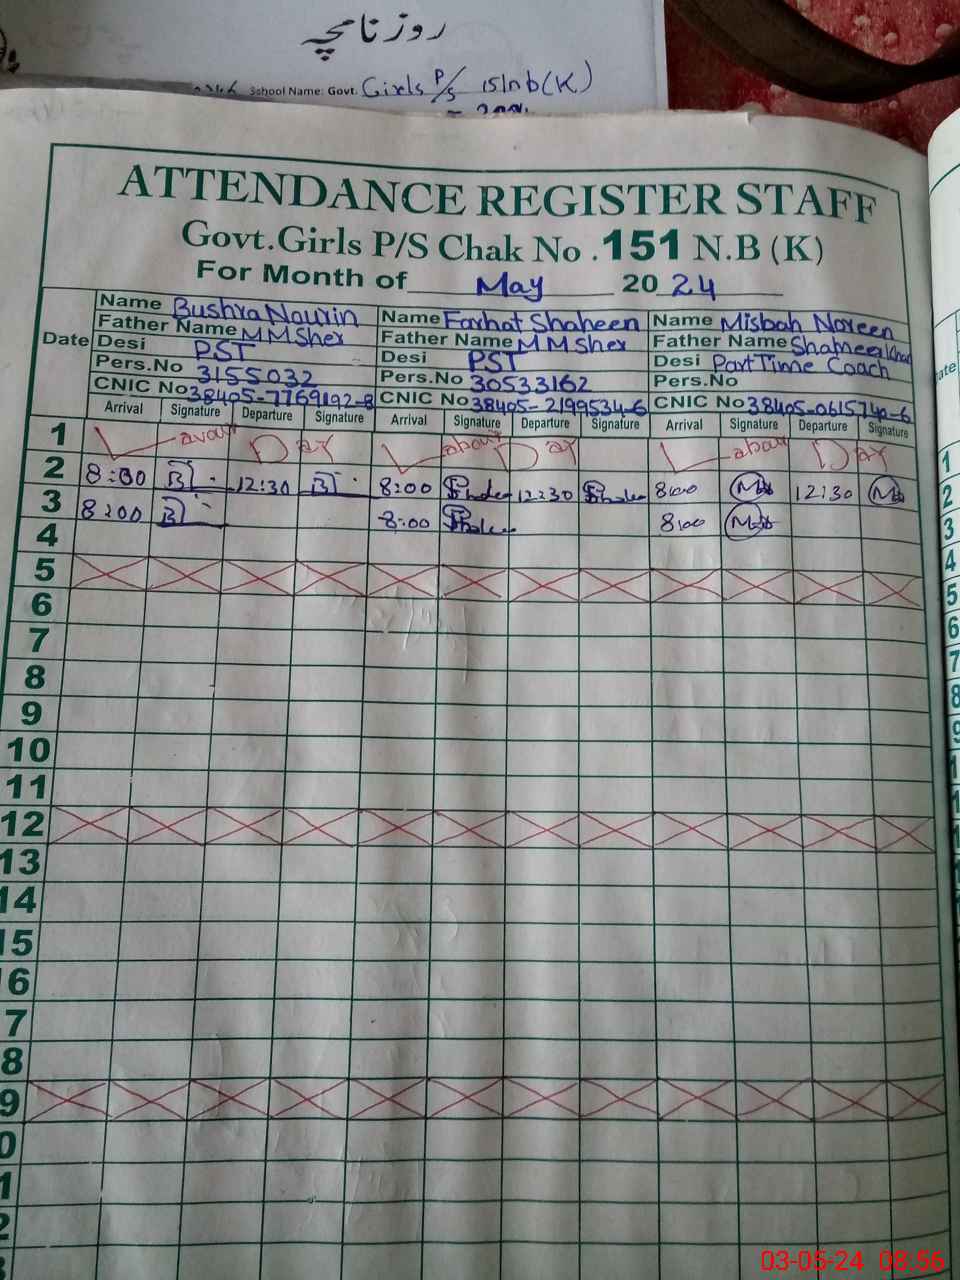 روزنامچہ
School Name: Govt. Girls P/S 151nb(K)
ATTENDANCE REGISTER STAFF
Govt.Girls P/S Chak No .151 N.B (K)
For Month of May 2024
Date
Name Bushra Nourin Name Farhat Shaheen Name Misbah Noreen
Father Name MM Sher Father Name MM Sher Father Name Shameer Khan
Desi PST Desi PST Desi Part Time Coach
Pers.No 3155032 Pers.No 30533162 Pers.No
CNIC No 38405-7769192-8 CNIC No 38405-2199534-6 CNIC No 38405-0615740-6
Arrival Signature Departure Signature Arrival Signature Departure Signature Arrival Signature Departure Signature
1 Labour Day Labour Day Labour Day
2 8:00 12:30 8:00 12:30 8:00 12:30
3 8:00 8:00 8:00
4
5
6
7
8
9
10
11
12
13
14
15
6
7
8
9
0
1
2
ate
1
2
3
4
5
6
7
8
9
03-05-24 08:56